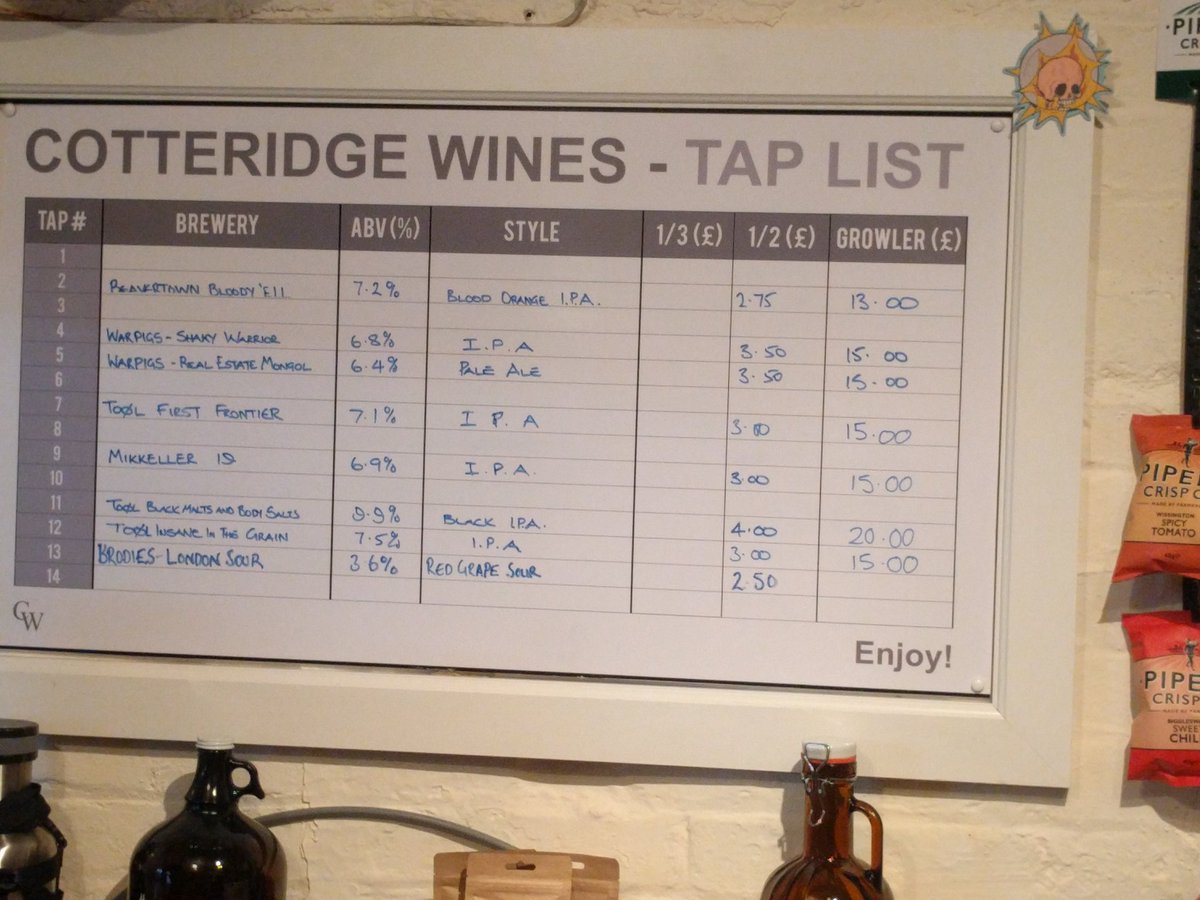 PIPE
CR
COTTERIDGE WINES - TAP LIST
TAP # BREWERY ABV (%) STYLE 1/3 (£) 1/2 (£) GROWLER (£)
1
2 BEAVERTOWN BLOODY 'ELL 7.2% BLOOD ORANGE I.P.A. 2.75 13.00
3
4 WARPIGS - SHAKY WARRIOR 6.8% I.P.A 3.50 15.00
5 WARPIGS - REAL ESTATE MONGOL 6.4% PALE ALE 3.50 15.00
6
7 TOØL FIRST FRONTIER 7.1% I P. A 3.00 15.00
8
9 MIKKELLER 19. 6.9% I.P.A. 3.00 15.00
10
11 TOØL BLACK MALTS AND BODY SALTS 9.9% BLACK I.P.A. 4.00 20.00
12 TOØL INSANE IN THE GRAIN 7.5% I.P.A 3.00 15.00
13 BRODIES - LONDON SOUR 3.6% RED GRAPE SOUR 2.50
14
GW
Enjoy!
PIPE
CRISP C
WISSINGTON
SPICY
TOMATO
PIPE
CRISP
SWEE
CHIL